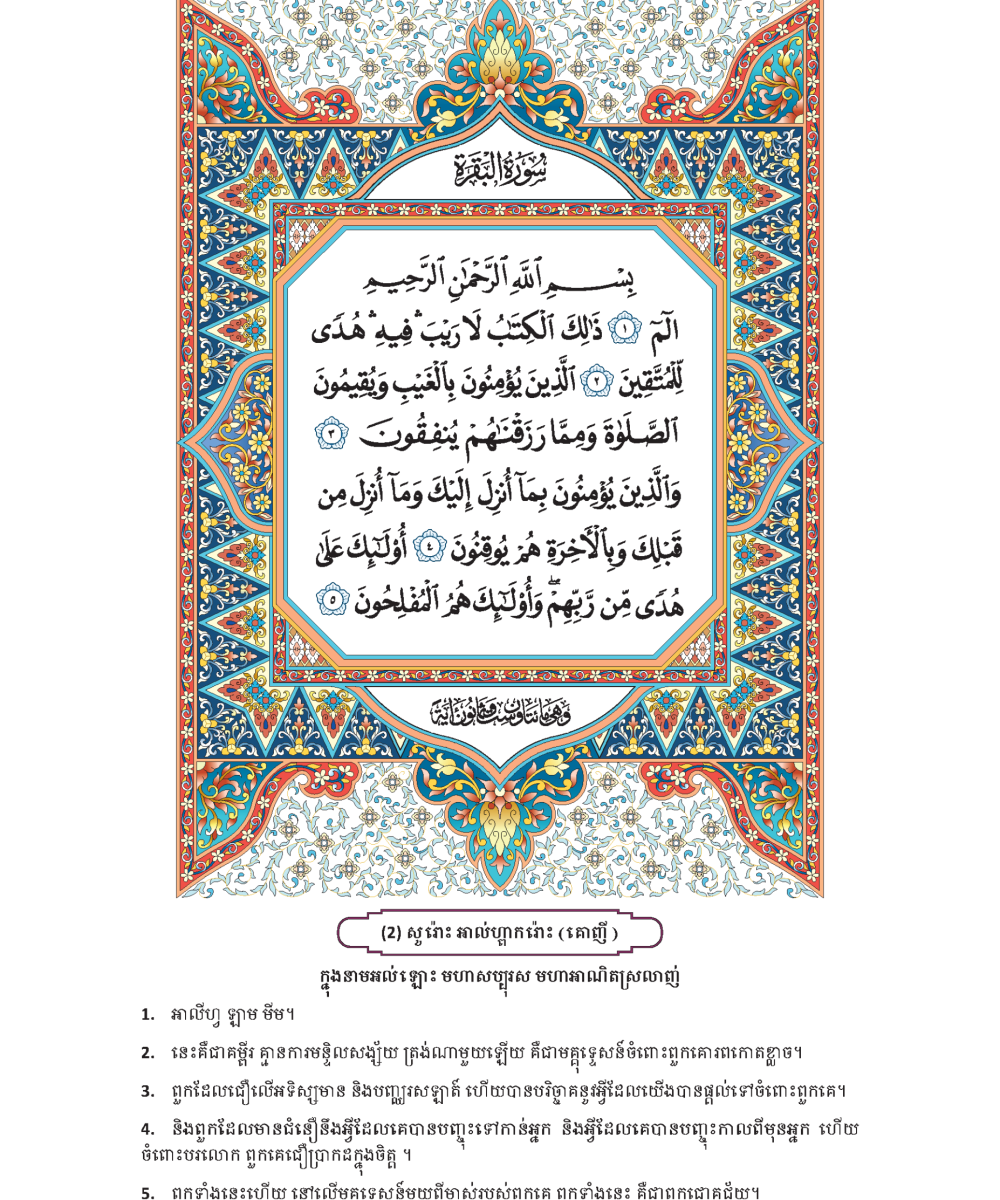 سُورَةُ الْبَقَرَةِ
بِسْمِ ٱللَّهِ ٱلرَّحْمَٰنِ ٱلرَّحِيمِ
الٓمٓ ١ ذَٰلِكَ ٱلْكِتَٰبُ لَا رَيْبَ ۛ فِيهِ ۛ هُدًى
لِّلْمُتَّقِينَ ٢ ٱلَّذِينَ يُؤْمِنُونَ بِٱلْغَيْبِ وَيُقِيمُونَ
ٱلصَّلَوٰةَ وَمِمَّا رَزَقْنَٰهُمْ يُنفِقُونَ ٣
وَٱلَّذِينَ يُؤْمِنُونَ بِمَآ أُنزِلَ إِلَيْكَ وَمَآ أُنزِلَ مِن
قَبْلِكَ وَبِٱلْءَاخِرَةِ هُمْ يُوقِنُونَ ٤ أُو۟لَٰٓئِكَ عَلَىٰ
هُدًى مِّن رَّبِّهِمْ ۖ وَأُو۟لَٰٓئِكَ هُمُ ٱلْمُفْلِحُونَ ٥
وَهِيَ مِائَتَانِ وَسِتٌّ وَثَمَانُونَ آيَةً
(2) សូរ៉ោះ អាល់ហ្ពាករ៉ោះ (គោញី)
ក្នុងនាមអល់ឡោះ មហាសប្បុរស មហាអាណិតស្រលាញ់
1. អាលីហ្វ ឡាម មីម។
2. នេះគឺជាគម្ពីរ គ្មានការមន្ទិលសង្ស័យ ត្រង់ណាមួយឡើយ គឺជាមគ្គុទ្ទេសន៍ចំពោះពួកគោរពកោតខ្លាច។
3. ពួកដែលជឿលើអទិស្សមាន និងបញ្ឈរសឡាត៍ ហើយបានបរិច្ចាគនូវអ្វីដែលយើងបានផ្តល់ទៅចំពោះពួកគេ។
4. និងពួកដែលមានជំនឿនឹងអ្វីដែលគេបានបញ្ចុះទៅកាន់អ្នក និងអ្វីដែលគេបានបញ្ចុះកាលពីមុនអ្នក ហើយ
ចំពោះបរលោក ពួកគេជឿប្រាកដក្នុងចិត្ត ។
5. ពួកទាំងនេះហើយ នៅលើមគ្គុទ្ទេសន៍មួយពីម្ចាស់របស់ពួកគេ ពួកទាំងនេះ គឺជាពួកជោគជ័យ។